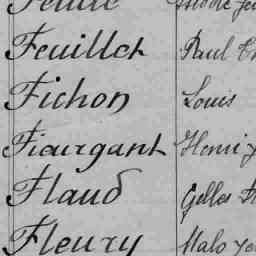 Feuillet Paul
Fichon Louis
Fiourgant Henri
Flaud Gilles
Fleury Malo